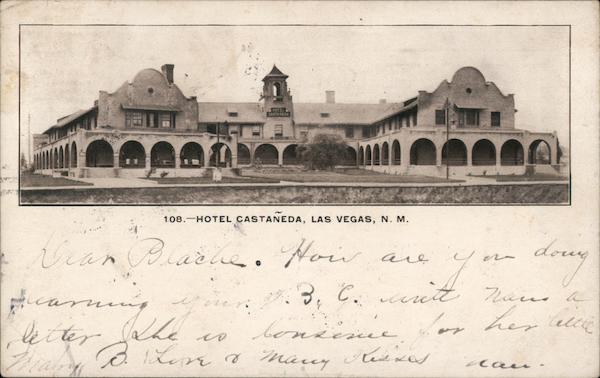 HOTEL
CASTAÑEDA
108.—HOTEL CASTAÑEDA, LAS VEGAS, N. M.
Dear Blache. How are you doing
learning your A. B, C. writ Nana a
letter She is lonsine for her little
Mary B. Love & Many Kisses Nan.